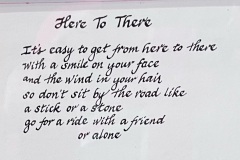 Here To There
It's easy to get from here to there
with a smile on your face
and the wind in your hair
so don't sit by the road like
a stick or a stone
go for a ride with a friend
or alone